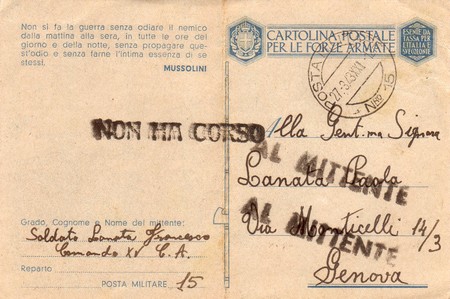 Non si fa la guerra senza odiare il nemico
dalla mattina alla sera, in tutte le ore del
giorno e della notte, senza propagare que-
st'odio e senza farne l'intima essenza di se
stessi.
MUSSOLINI
CARTOLINA POSTALE
PER LE FORZE ARMATE
ESENTE DA
TASSA PER
L'ITALIA
E SUE COLONIE
POSTA
Nro 15
NON HA CORSO
Alla Gent.ma Signora
AL MITTENTE
Lanata Paola
AL MITTENTE
Via Monticelli 14/3
Genova
Grado, Cognome e Nome del mittente:
Soldato Lanata Francesco
Comando XV C. A.
Reparto
POSTA MILITARE 15